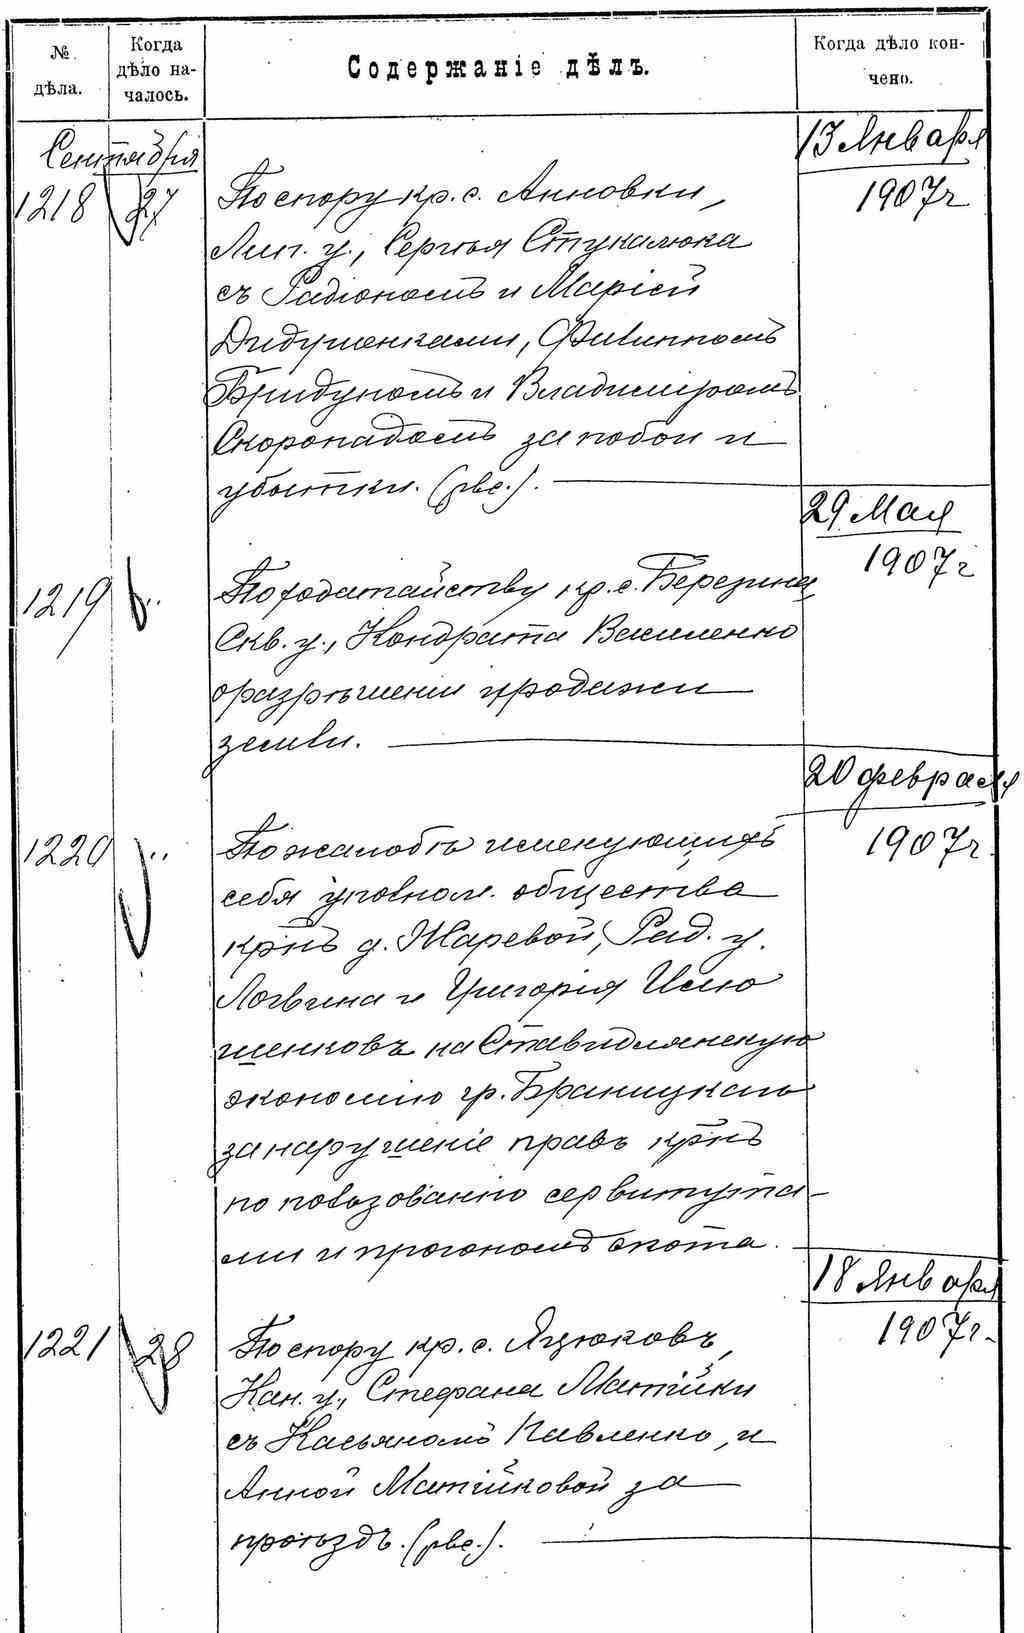 № дѣла.
Когда дѣло началось.
Содержаніе дѣлъ.
Когда дѣло кончено.
Сентября
13 Января
1218 27 По спору кр. с. Анновки, 1907 г
Лип. у., Сергѣя Стукалюка
съ Радіономъ и Маріей
Дидушенками, Филиппомъ
Бридуномъ и Владиміромъ
Скоропадомъ за побои и
убытки. (рвс.).
29 Мая
1907 г
1219 ,, По ходатайству кр. с. Березина,
Скв. у., Кондрата Василенко
о разрѣшеніи продажи
земли.
20 февраля
1220 ,, По жалобѣ именующихъ 1907 г.
себя уполном. общества
крнъ д. Жаревой, Рад. у.
Логвина и Григорія Илю
шенковъ на Ставидлянскую
экономію гр. Браницкаго
за нарушеніе правъ крнъ
по пользованію сервитута-
ми и прогономъ скота.
18 Января
1221 28 По спору кр. с. Яцюковъ, 1907 г.
Кан. у., Стефана Матійки
съ Касьяномъ Павленко, и
Анной Матійковой за
проѣздъ. (рвс.).